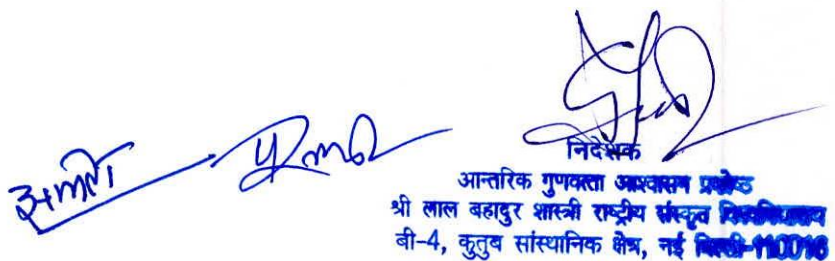 निदेशक
आन्तरिक गुणवत्ता आश्वासन प्रकोष्ठ
श्री लाल बहादुर शास्त्री राष्ट्रीय संस्कृत विश्वविद्यालय
बी-4, कुतुब सांस्थानिक क्षेत्र, नई दिल्ली-110016